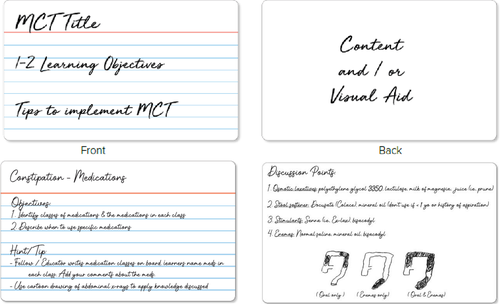 MCT Title
1-2 Learning Objectives
Tips to implement MCT
Front
Content
and / or
Visual Aid
Back
Constipation - Medications
Objectives:
1. Identify classes of medications & the medications in each class
2. Describe when to use specific medications
Hint/Tip:
- Fellow / Educator writes medication classes on board learners name meds in
each class. Add your comments about the meds
- Use cartoon drawing of abdominal x-rays to apply knowledge discussed
Discussion Points:
1. Osmotic laxatives: polyethylene glycol 3350, lactulose, milk of magnesia, juice (i.e. prune)
2. Stool softener: Docusate (Colace), mineral oil (don't use if < 1 yo or history of aspiration)
3. Stimulants: Senna (i.e. Ex-lax), bisacodyl
4. Enemas: Normal saline, mineral oil, bisacodyl
(Oral only)
(Enemas only)
(Oral & Enemas)